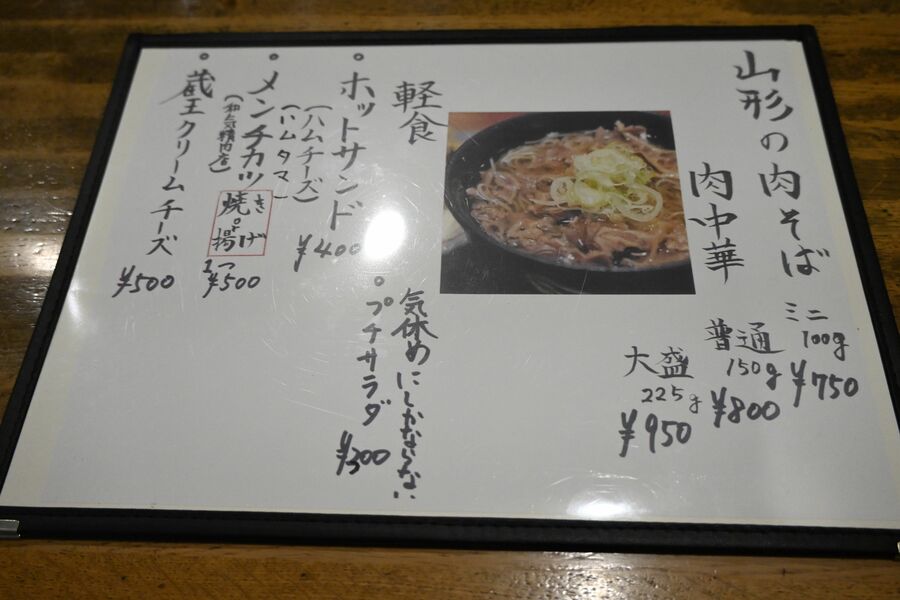 山形の肉そば
肉中華
ミニ
100g
¥750
普通
150g
¥800
大盛
225g
¥950
軽食
。ホットサンド
(ハムチーズ)
(ハムタマ)
¥400
気休めにしかならない
。プチサラダ
¥300
。メンチカツ
(和気精肉店)
焼き
揚げ
¥500
。蔵王クリームチーズ
¥500